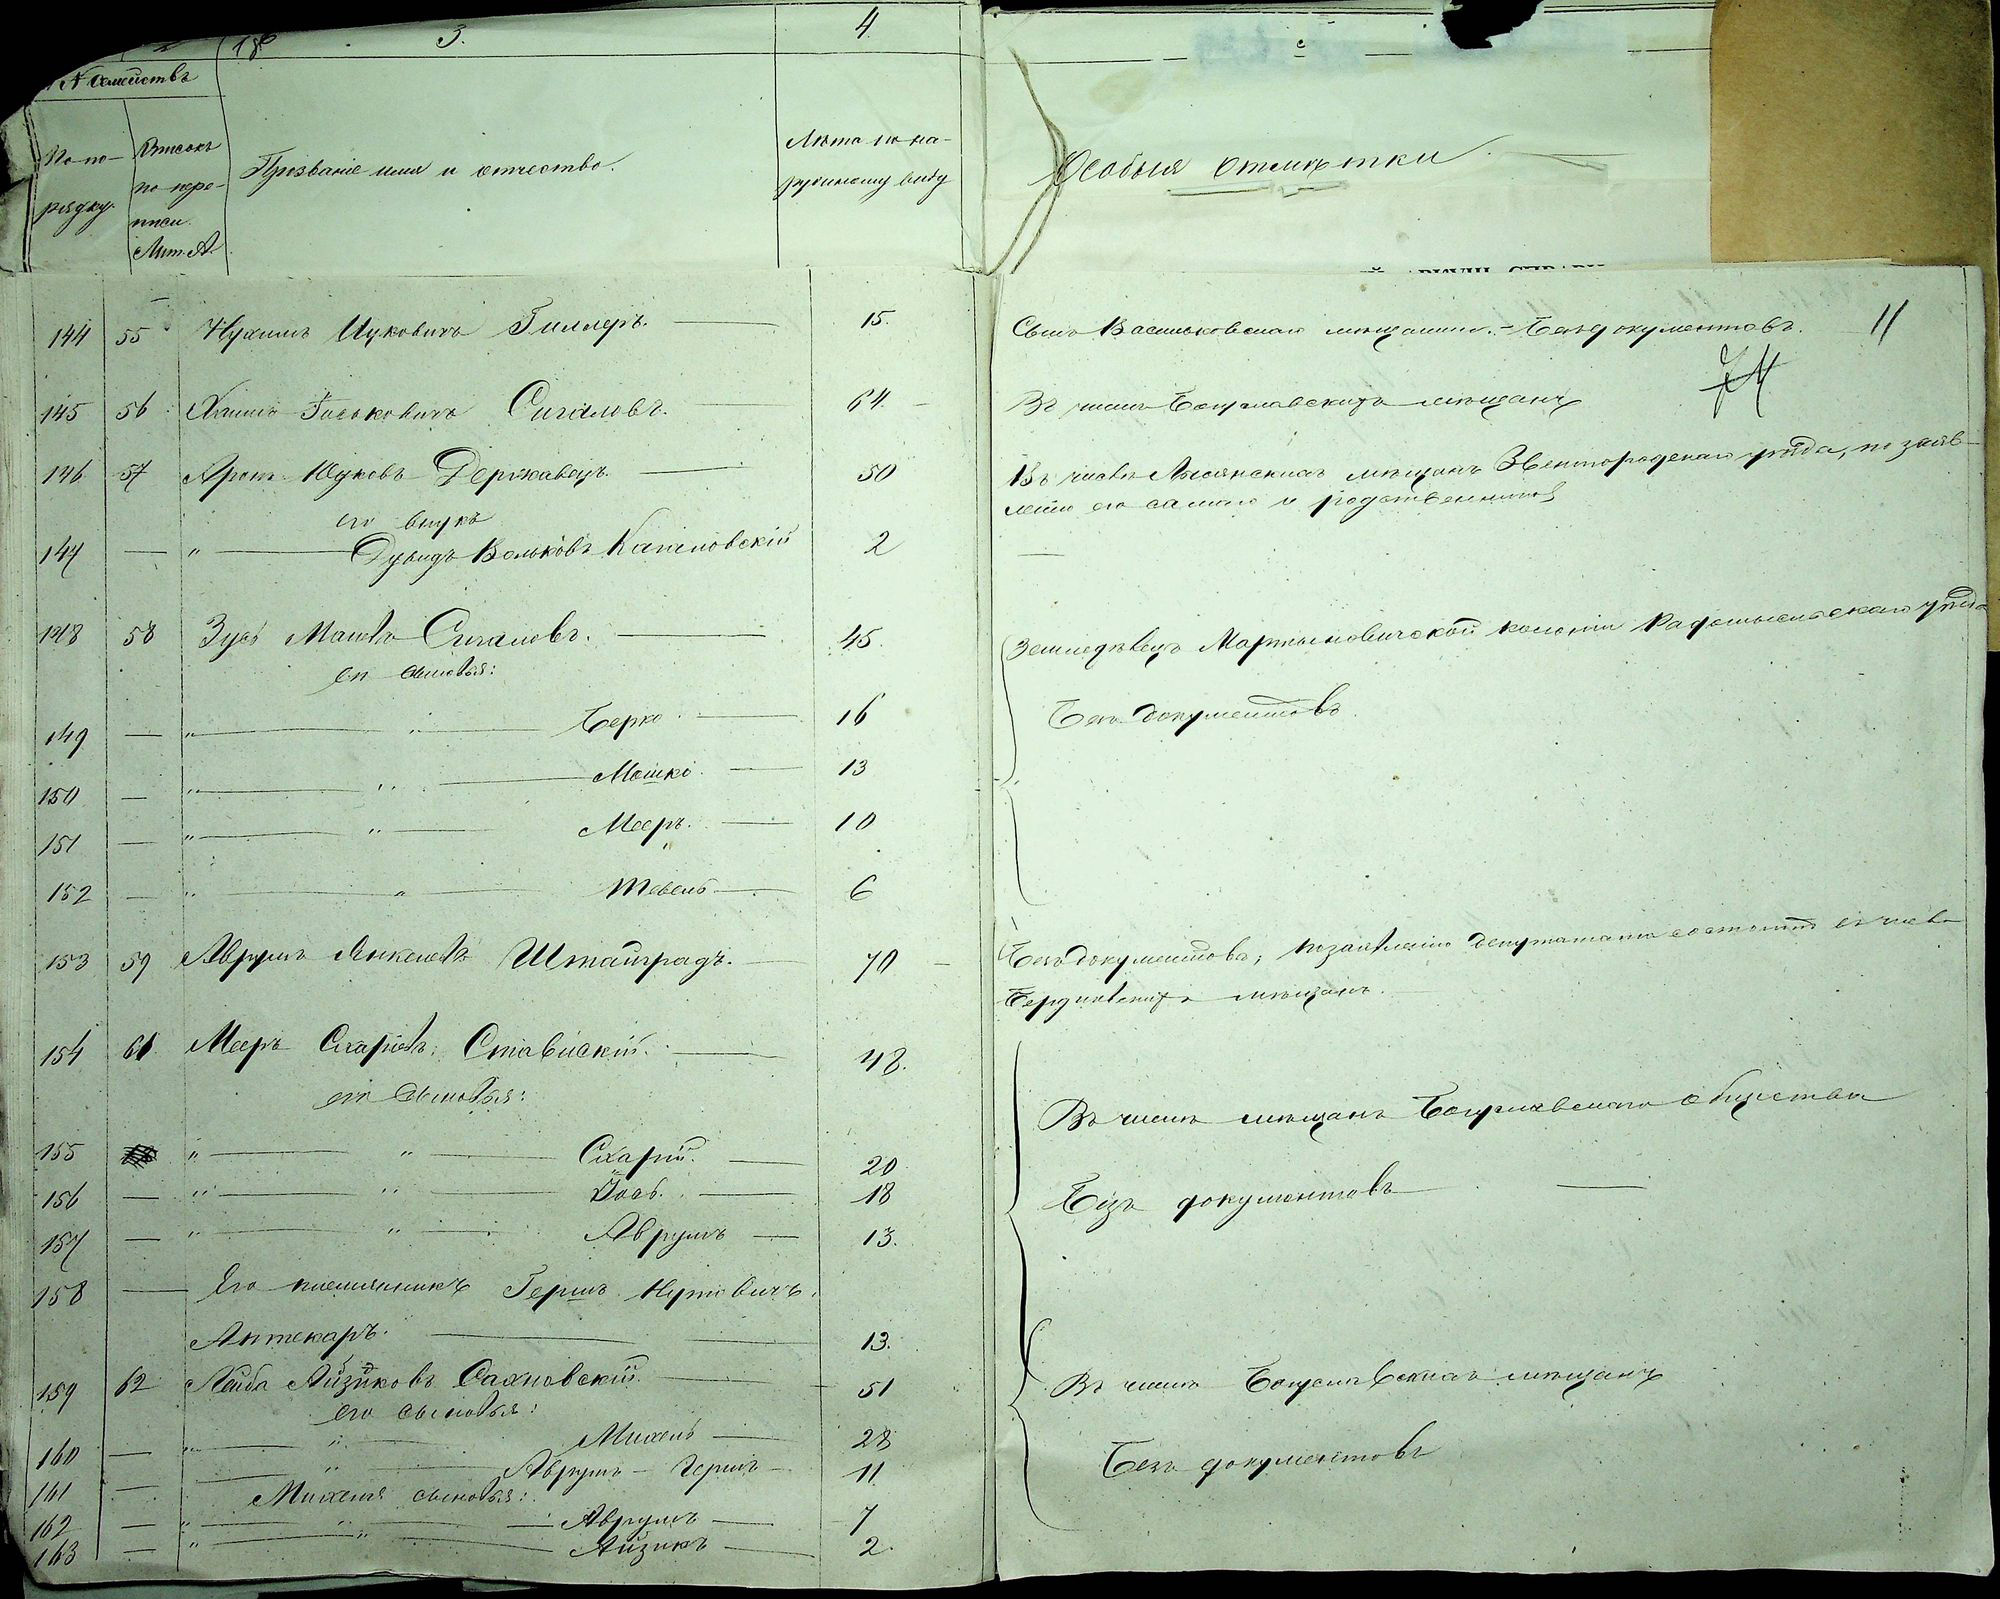 3.
4
№ Семействъ
По по-
рядку.
Въ пере-
писи.
Лит. А.
Прозваніе имя и отчество.
Лѣта по на-
ружному виду
Особыя отмѣтки
144 55 Нухимъ Ицковичъ Гиллеръ. 15. Сынъ Васильковскаго мѣщанина. - Безъ документовъ. 11
74
145 56 Хаимъ Сигаловъ. 64. Въ числѣ Богуславскихъ мѣщанъ
146 57 Аронъ Ицковъ Державецъ. 50 Въ числѣ Лисянскихъ мѣщанъ Звенигородскаго уѣзда, по заяв-
ленію его самаго и родственниковъ
его внукъ
147 — " Дувидъ Вольковъ Кагановскій 2 —
148 58 Зусь Сигаловъ. 45. Земледѣлецъ Мартыновичской колоніи Радомысльскаго уѣзда
его сыновья:
149 — " " Берко. 16 Безъ документовъ.
150 — " " Мошко. 13
151 — " " Мееръ. 10
152 — " " Тевель 6
153 59 Аврумъ Янкелевъ Штайградъ. 70 Безъ документовъ, по заявленію депутата состоитъ въ числѣ
мѣщанъ.
154 61 Мееръ Схаріевъ Ставискій. 48.
его сыновья:
Въ числѣ мѣщанъ Богуславскаго общества
155 " " Схарій. 20
156 — " " Іось. 18 Безъ документовъ
157 — " " Аврумъ 13.
158 — Его племянникъ Гершъ Нутовичъ
Аптекарь. 13.
159 62 Лейба Айзиковъ Сахновскій 51 Въ числѣ Богуславскихъ мѣщанъ
его сыновья:
160 — " " Михель 28 Безъ документовъ
161 — " Аврумъ - Гершъ 11
Михеля сыновья:
162 — " " Аврумъ 7
163 — " " Айзикъ 2.